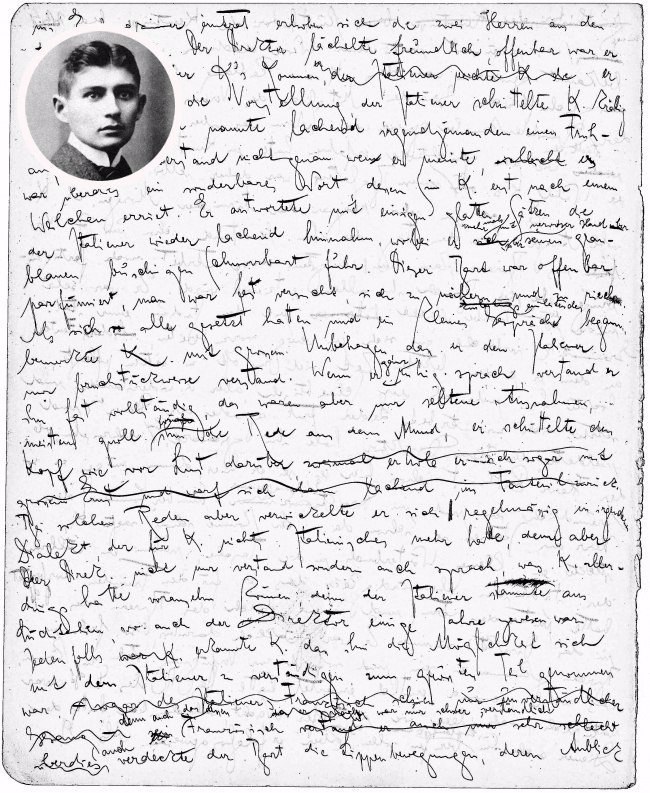 zimmer eintrat erhoben sich die zwei Herren aus den
Der Direktor lächelte freundlich, offenbar war er
K's Kommen der Italiener reichte K die er
die Vorstellung der Italiener schüttelte K. kräftig
nannte lachend irgendjemanden einen Früh-
verstand nicht genau wen er meinte, er
war überdies ein sonderbares Wort dessen Sinn K. erst nach einem
Weilchen erriet. Er antwortete mit einigen glatten Sätzen die
der Italiener wieder lachend hinnahm, wobei er mehrmals mit nervöser Hand über seinen grau-
blauen buschigen Schnurrbart fuhr. Dieser Bart war offenbar
parfümiert, man war fast versucht, sich zu nähern und zu riechen.
Als sich alle gesetzt hatten und ein kleines einleitendes Gespräch begann,
bemerkte K. mit grossem Unbehagen, das er den Italiener
nur bruchstückweise verstand. Wenn er ganz ruhig sprach verstand er
ihn fast vollständig, das waren aber nur seltene Ausnahmen,
meistens quoll ihm die Rede aus dem Mund, er schüttelte den
Kopf wie vor Lust darüber er sich sogar mit
grossem und warf sich dann lachend im Fauteuil zurück
Bei solchen Reden aber verwickelte er sich regelmässig in irgendeinen
Dialekt der für K. nichts Italienisches mehr hatte, den aber
der Direk. nicht nur verstand sondern auch sprach, was K. aller-
dings hätte voraussehn können denn der Italiener stammte aus
Süditalien, wo auch der Direktor einige Jahre gewesen war.
Jedenfalls erkannte K. das ihm die Möglichkeit sich
mit dem Italiener zu verständigen zum grössten Teil genommen
war der Italiener Französisch schien unverständlicher
denn auch dessen Französisch war nur schwer verständlich
verstand er auch nur sehr schlecht
auch verdeckte der Bart die Lippenbewegungen, deren Anblick